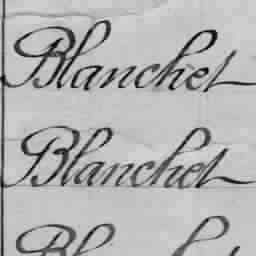 Blanchet
Blanchet